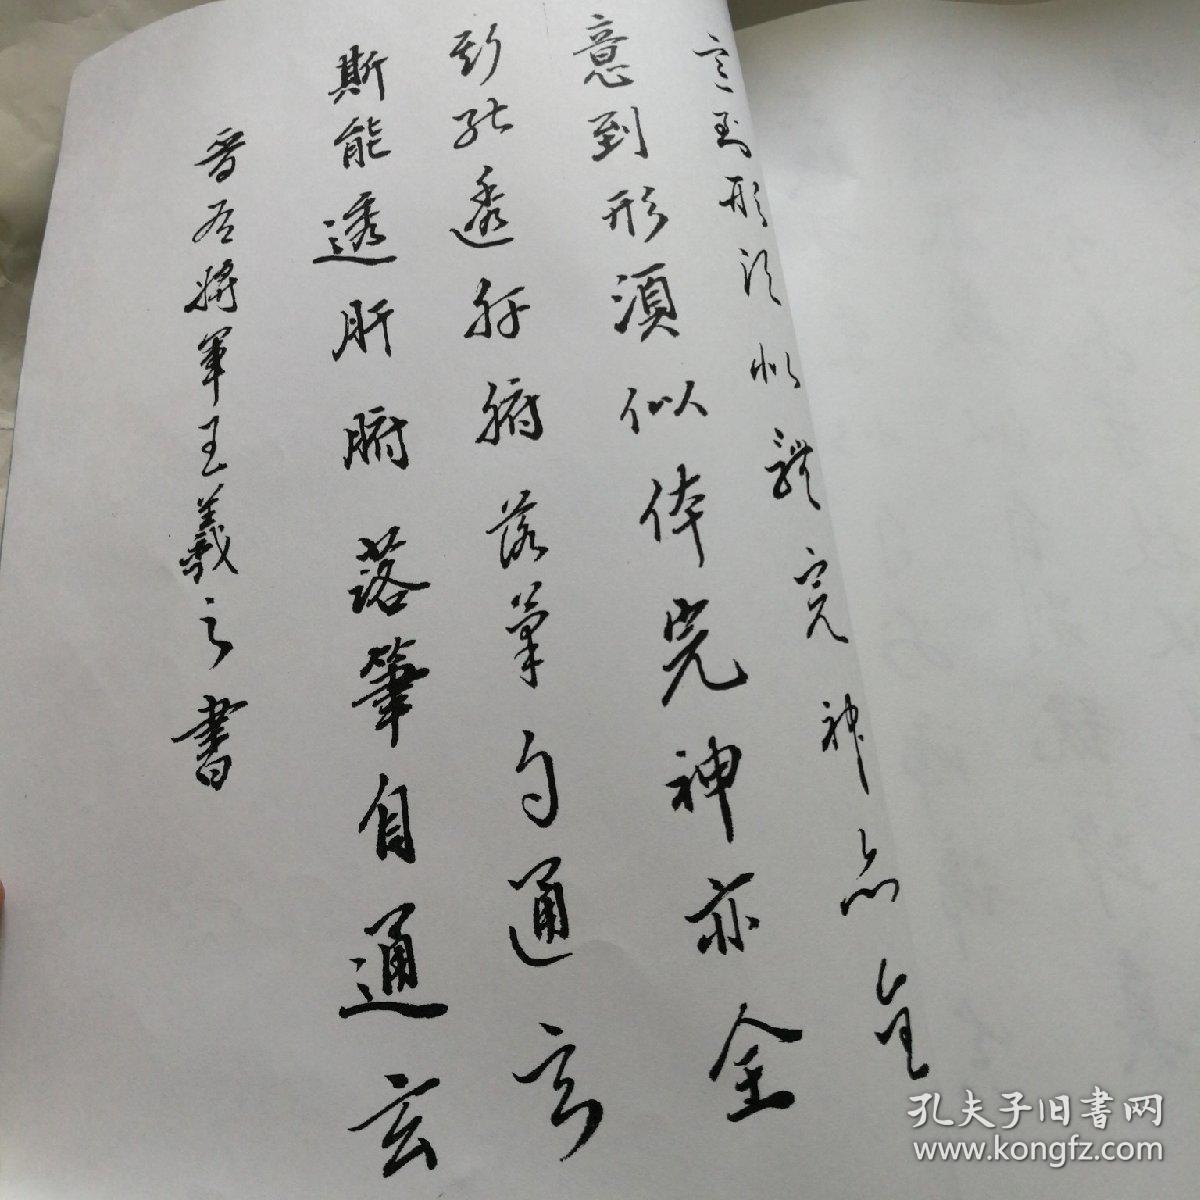 意到形須似體完神亦全
意到形須似体完神亦全
斯能透肝腑落筆自通玄
斯能透肝腑落筆自通玄
晉右將軍王羲之書
孔夫子旧書网
www.kongfz.com